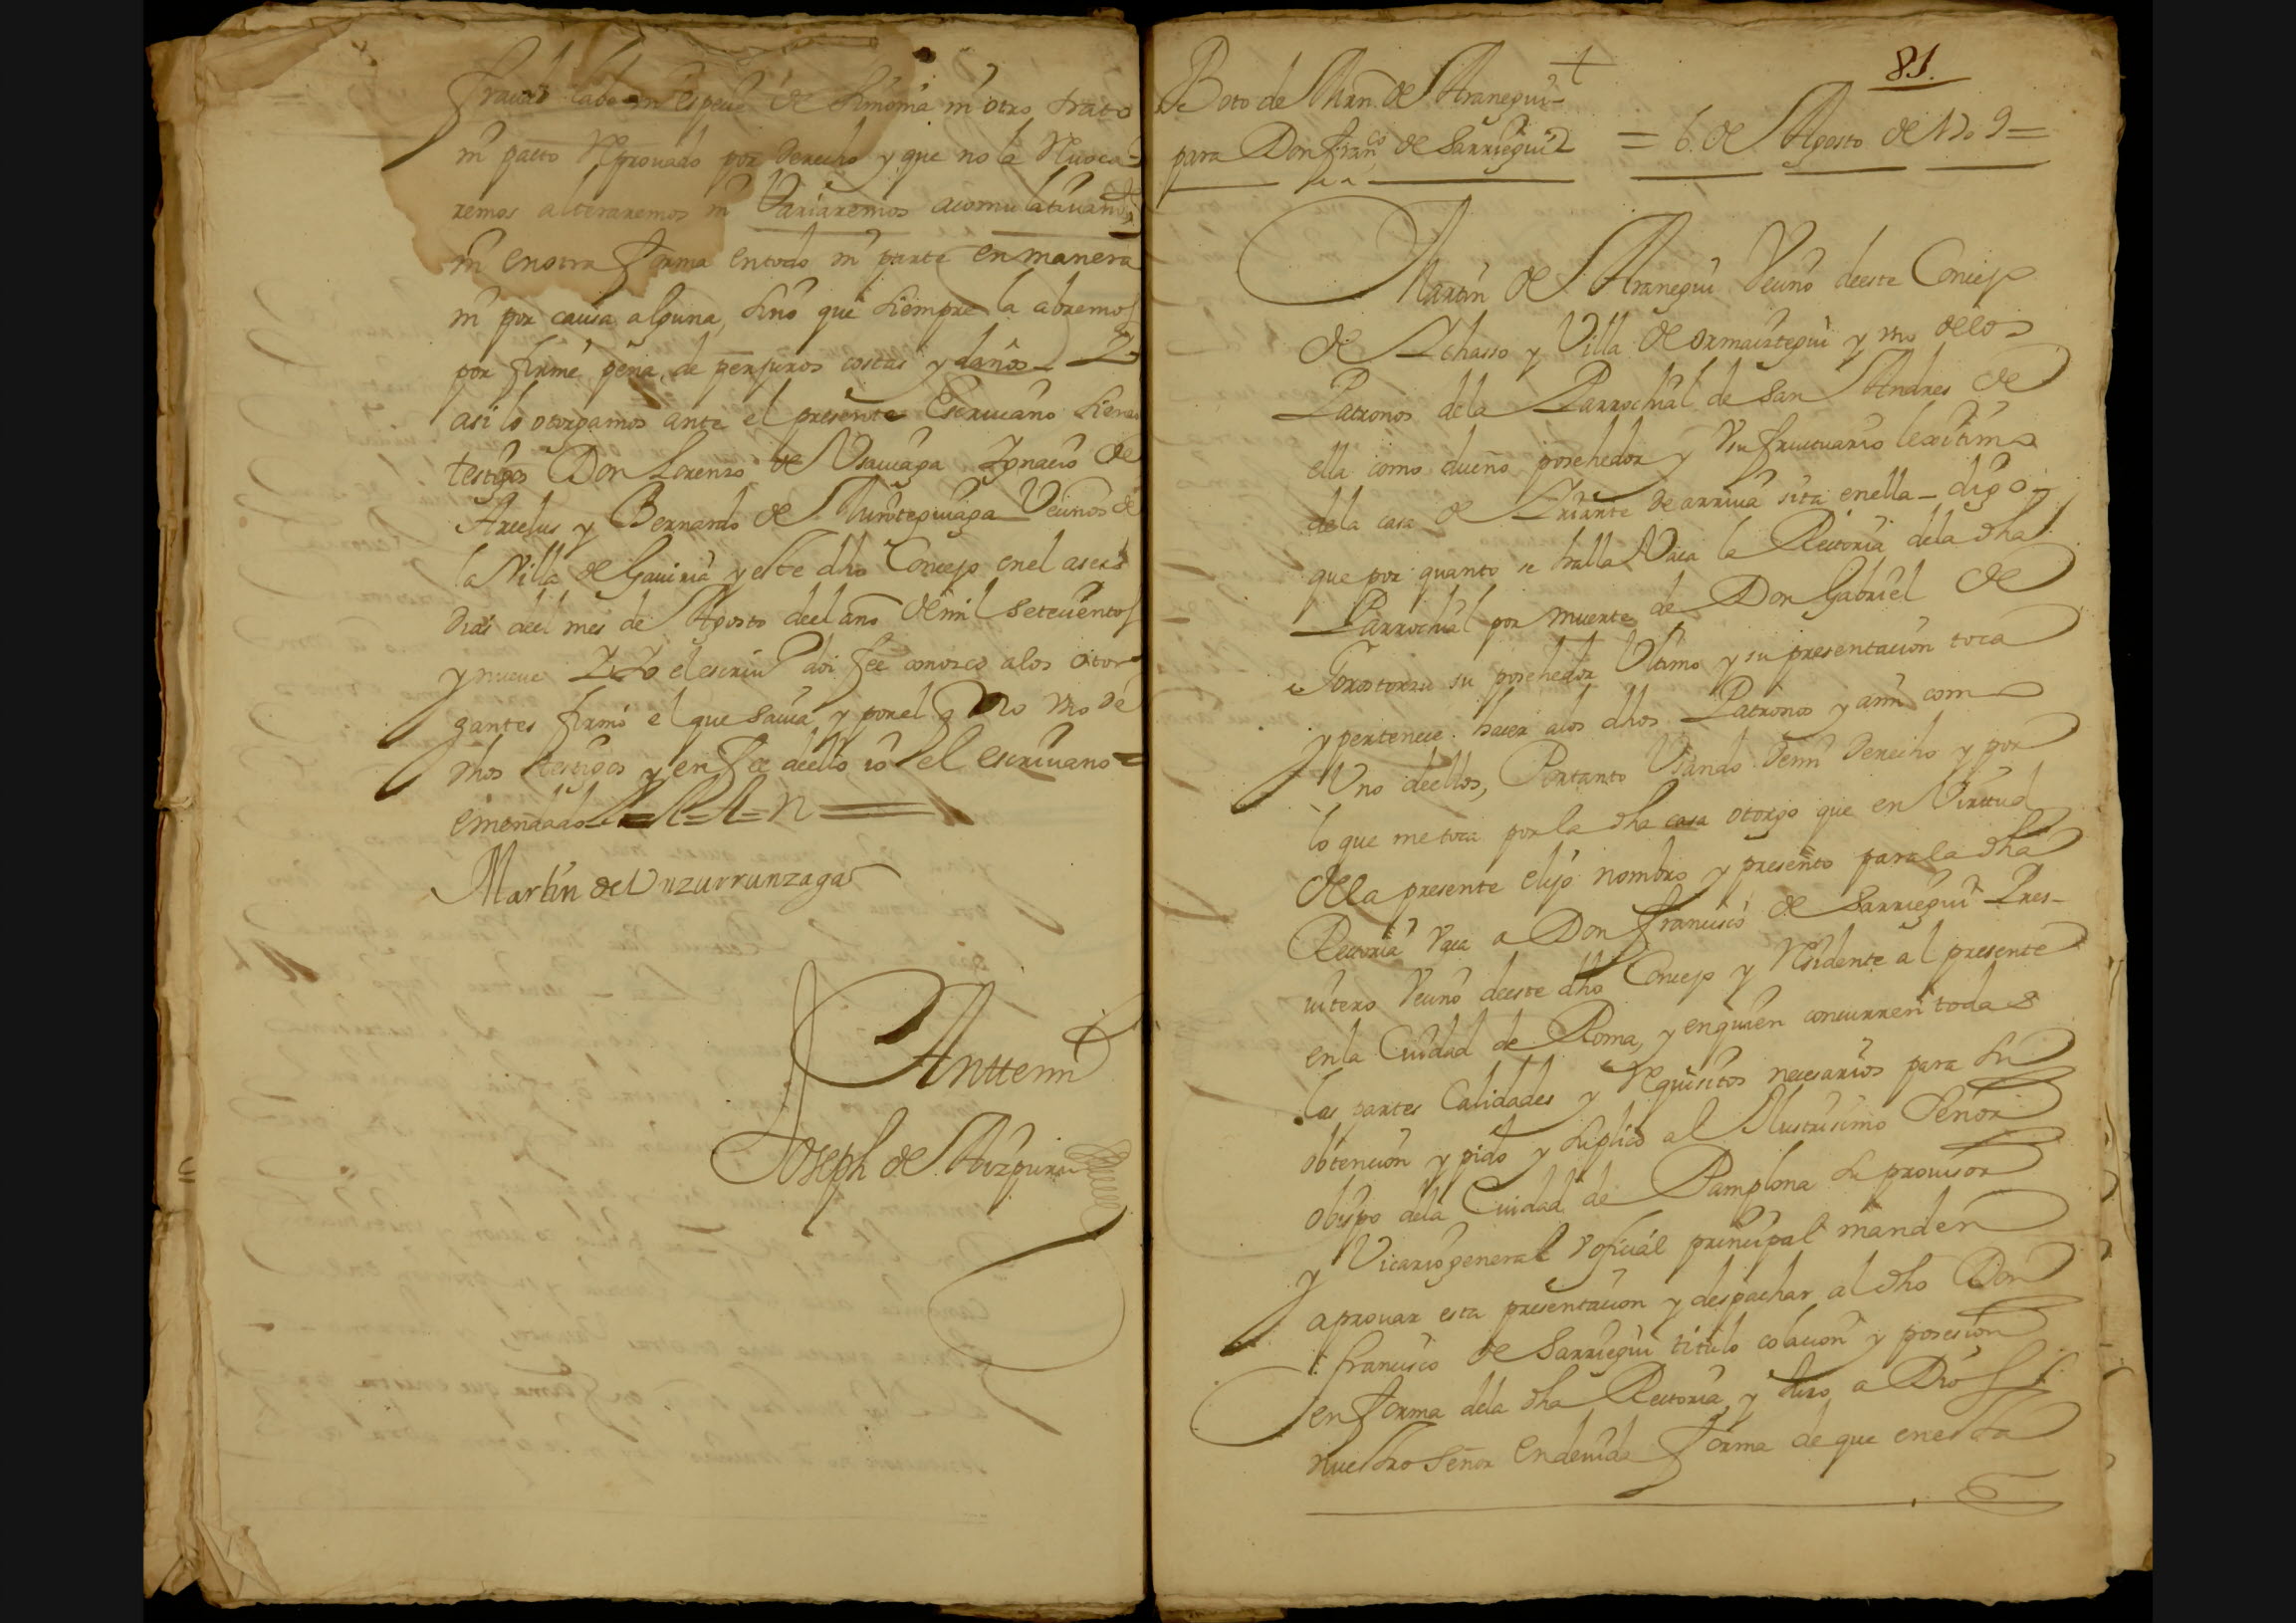 fraude labe ni espeçie de simonia ni otro trato
ni pacto Reprouado por derecho y que no la Reuoca-
remos alteraremos ni Variaremos acomulatiuando
ni en otra forma en todo ni parte en manera
ni por causa alguna, sino que siempre la abremos
por firme pena de perjuros costas y daños - Y
asi lo otorgamos ante el presente Escriuano siendo
testigos Don Lorenzo de Vsauiaga Ygnacio de
Arcelus y Bernardo de Veçinos de
la Villa de Gauiria y este dho Concejo en el a seis
dias deel mes de Agosto deel año de mil seteçientos
y nueue Y Yo el escriu.º doi fee conosco a los otor-
gantes firmo el que sauia y por el q no vno de
dhos testigos y en fee deello io el escriuano =
emendado
Martin de Vzurrunzaga
Anttemi
Joseph de Aizpuru
81.
Boto de Mrn. de Aranegui
para Don Fran.co de Sarriegui = 6 de Agosto de 1709 =
Martin de Aranegui Veçino deeste Concejo
de Ichasso y Villa de ormaiztegui y vno de los
Patronos de la Parrochial de San Andres de
ella como dueño posehedor y Vsufructuario lexitimo
de la casa de Yriarte de arriua sita en ella - digo -
que por quanto se halla Vaca la Rectoria de la dha
Parrochial por muerte de Don Gabriel de
Gorostorzu su posehedor Vltimo y su presentaçion toca
y perteneçe haçer a los dhos Patronos y ami como
Vno deellos, Portanto Vsando demi derecho y por
lo que me toca por la dha casa otorgo que en Virtud
de la presente elijo nombro y presento para la dha
Rectoria Vaca a Don Francisco de Sarriegui Pres-
uitero Veçino deeste dho Concejo y Residente al presente
en la Ciudad de Roma, y en quien concurren todas
las partes Calidades y Requisitos neçesarios para su
obtençion y pido y suplico al Illustrisimo Señor
obispo de la Ciudad de Pamplona su prouisor
y Vicario general v ofiçial prinçipal manden
aprouar esta presentaçion y despachar al dho Don
francisco de Sarriegui titulo colaçion y posesion
en forma de la dha Rectoria, y Juro a Dios
nuestro Señor en deuida forma de que en esta